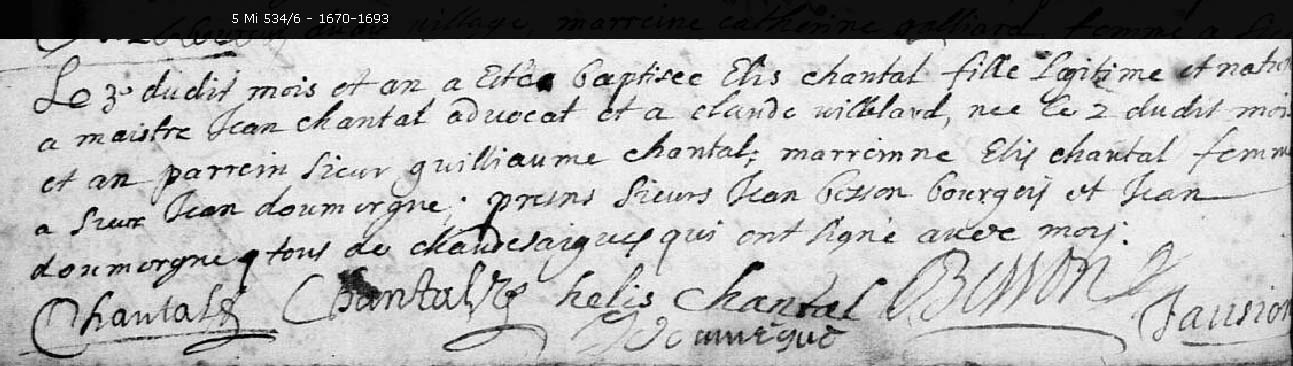 5 Mi 534/6 - 1670-1693
village, marreine catherine femme a
Le 3e dudit mois et an a Esté baptisee Elis chantal fille Legitime et natu
a maistre Jean chantal advocat et a claude villelard, nee le 2 dudit mois
et an parrein sieur guilliaume chantal; marreinne Elis chantal femme
a sieur Jean doumergne; presns sieurs Jean besson bourgeis et Jean
doumergne tous de chaudesaigues qui ont signé avec moy.
Chantal Chantal helis Chantal Besson